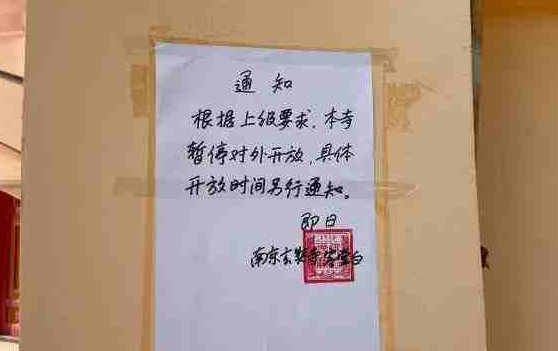 通知
根据上级要求,本寺
暂停对外开放,具体
开放时间另行通知。
即日
南京玄奘寺客堂白